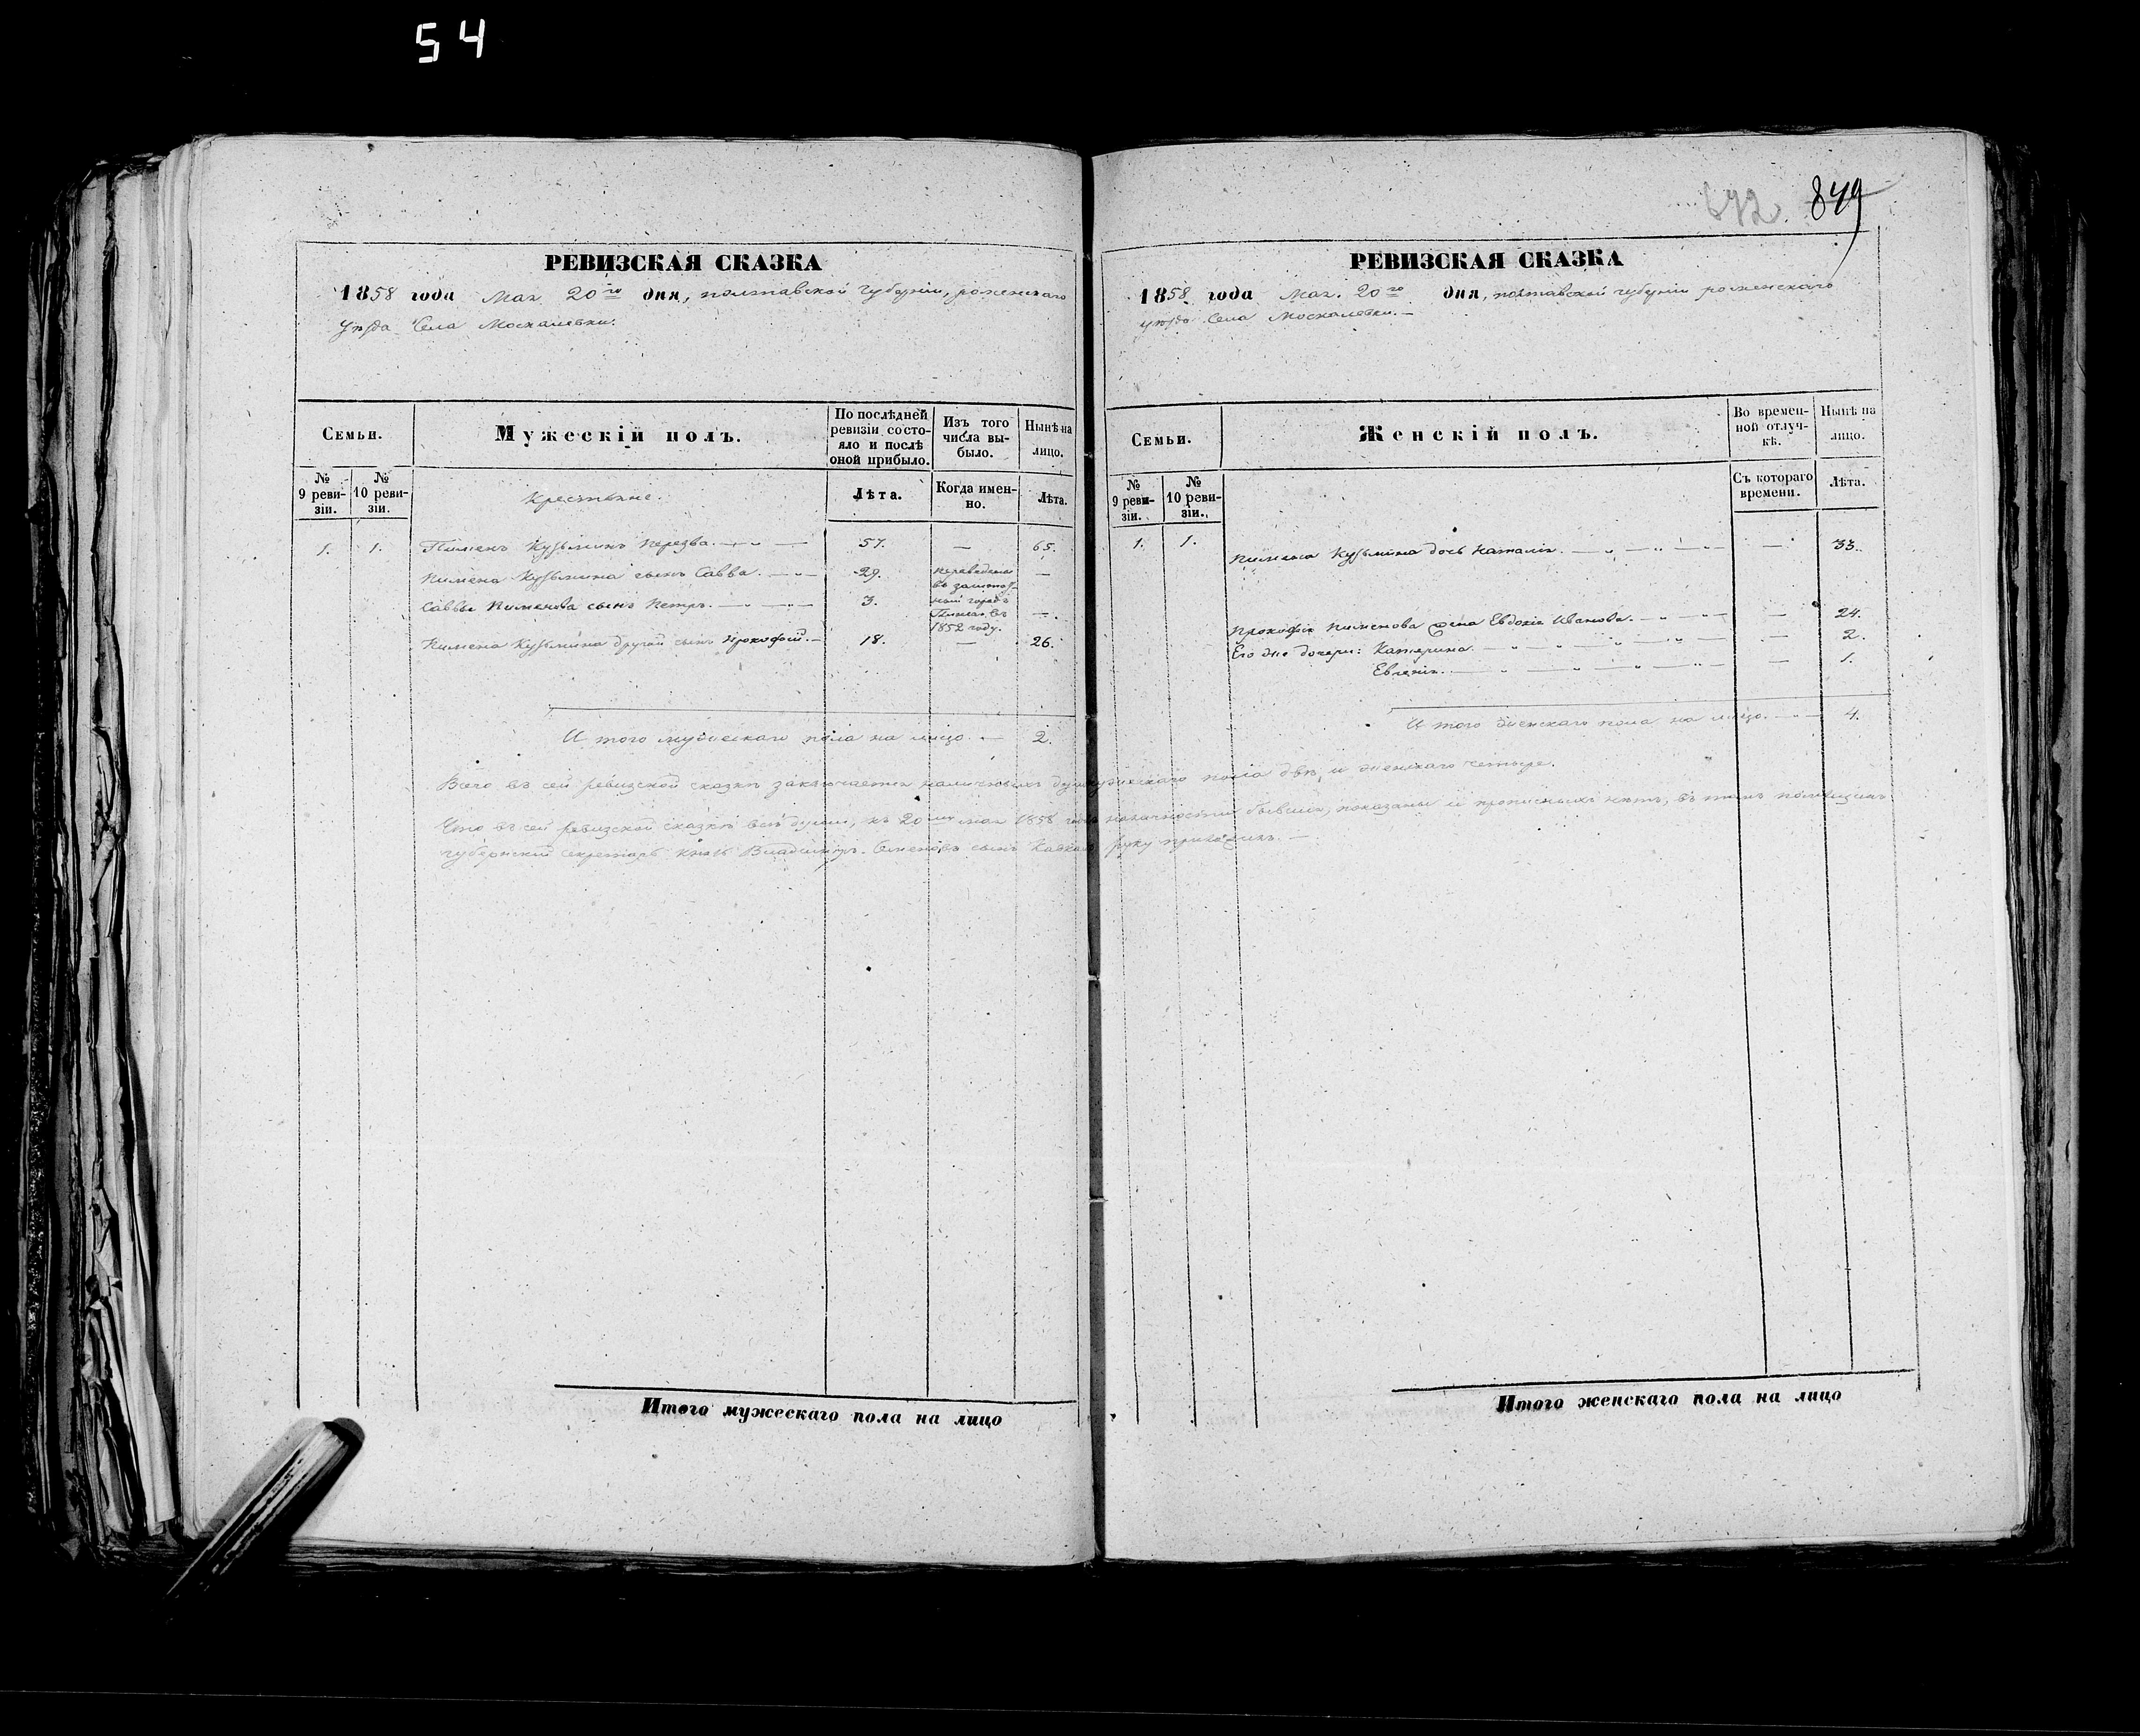 54
672. 849
РЕВИЗСКАЯ СКАЗКА
1858 года Мая 20го дня, полтавской губерніи, роменскаго
уѣзда Села Москалевки.
Семьи.
Мужескій полъ.
По послѣдней ревизіи состояло и послѣ оной прибыло.
Изъ того числа выбыло.
Нынѣ на лицо.
№ 9 ревизіи.
№ 10 ревизіи.
Крестьяне.
Лѣта.
Когда именно.
Лѣта.
1. 1. Пименъ Кузьминъ Перезва. — „ — 57. — 65.
Пимена Кузьмина сынъ Савва. — „ — 29. переведены —
въ
Саввы Пименова сынъ Петръ. — „ — 3. городъ —
въ
1852 году.
Пимена Кузьмина другой сынъ Прокофій. — 18. — 26.
И того мужескаго пола на лицо. — 2.
РЕВИЗСКАЯ СКАЗКА
1858 года Мая. 20го дня, полтавской губерніи роменскаго
уѣзда Села Москалевки. —
Семьи.
Женскій полъ.
Во временной отлучкѣ.
Нынѣ на лицо.
№ 9 ревизіи.
№ 10 ревизіи.
Съ котораго времени.
Лѣта.
1. 1. Пимена Кузьмина дочь Наталія. — „ — „ — „ — — 33.
Прокофія Пименова жена Евдокія Иванова. — „ — — 24.
Его же дочери: Катерина. — „ — „ — „ — „ — — 2.
Евгенія. — „ — „ — „ — „ — — 1.
И того женскаго пола на лицо. — „ — 4.
Всего въ сей ревизской сказкѣ заключается наличныхъ душъ мужескаго пола двѣ, и женскаго четыре.
Что въ сей ревизской сказкѣ всѣ души, къ 20му мая 1858 года наличности бывшія, показаны и прописныхъ нѣтъ, въ томъ помѣщикъ
губернскій секретарь князь Владимиръ Семеновъ сынъ руку приложилъ. —
Итого мужескаго пола на лицо
Итого женскаго пола на лицо